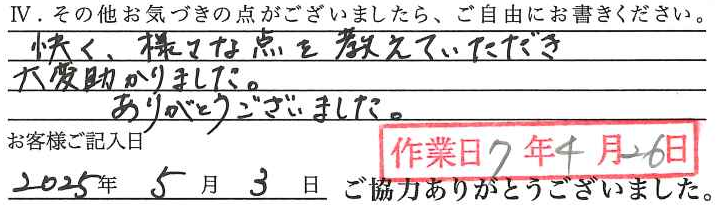 Ⅳ．その他お気づきの点がございましたら、ご自由にお書きください。
快く、様々な点を教えていただき
大変助かりました。
ありがとうございました。
お客様ご記入日
作業日7年4月26日
2025年 5月 3日 ご協力ありがとうございました。